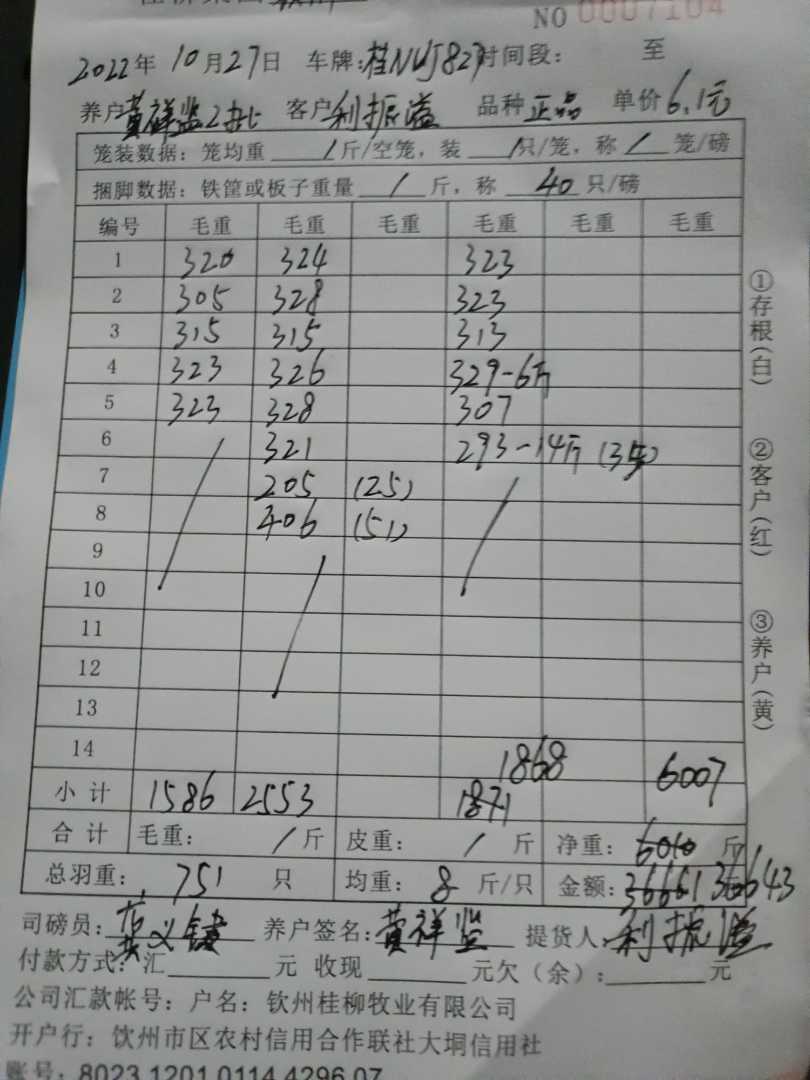 NO 0007104
2022年 10月27日 车牌:桂NUJ827 时间段: 至
养户 黄祥监 客户 利振溢 品种 正品 单价 6.1元
笼装数据: 笼均重 / 斤/空笼, 装 / 只/笼, 称 / 笼/磅
捆脚数据: 铁筐或板子重量 / 斤, 称 40 只/磅
编号 毛重 毛重 毛重 毛重 毛重 毛重
1 320 324 323
2 305 328 323
3 315 315 313
4 323 326 329-6斤
5 323 328 307
6 321 293-14斤 (35)
7 205 (25)
8 406 (51)
9
10
11
12
13
14 1868 6007
小计 1586 2553 1871
合计 毛重: / 斤 皮重: / 斤 净重: 6010 斤
总羽重: 751 只 均重: 8 斤/只 金额: 36661 36643
司磅员: 义 养户签名: 黄祥监 提货人: 利振溢
付款方式: 汇 元 收现 元欠(余): 元
公司汇款帐号: 户名: 钦州桂柳牧业有限公司
开户行: 钦州市区农村信用合作联社大垌信用社
账号: 8023 1201 0114 4296 07
①存根(白) ②客户(红) ③养户(黄)